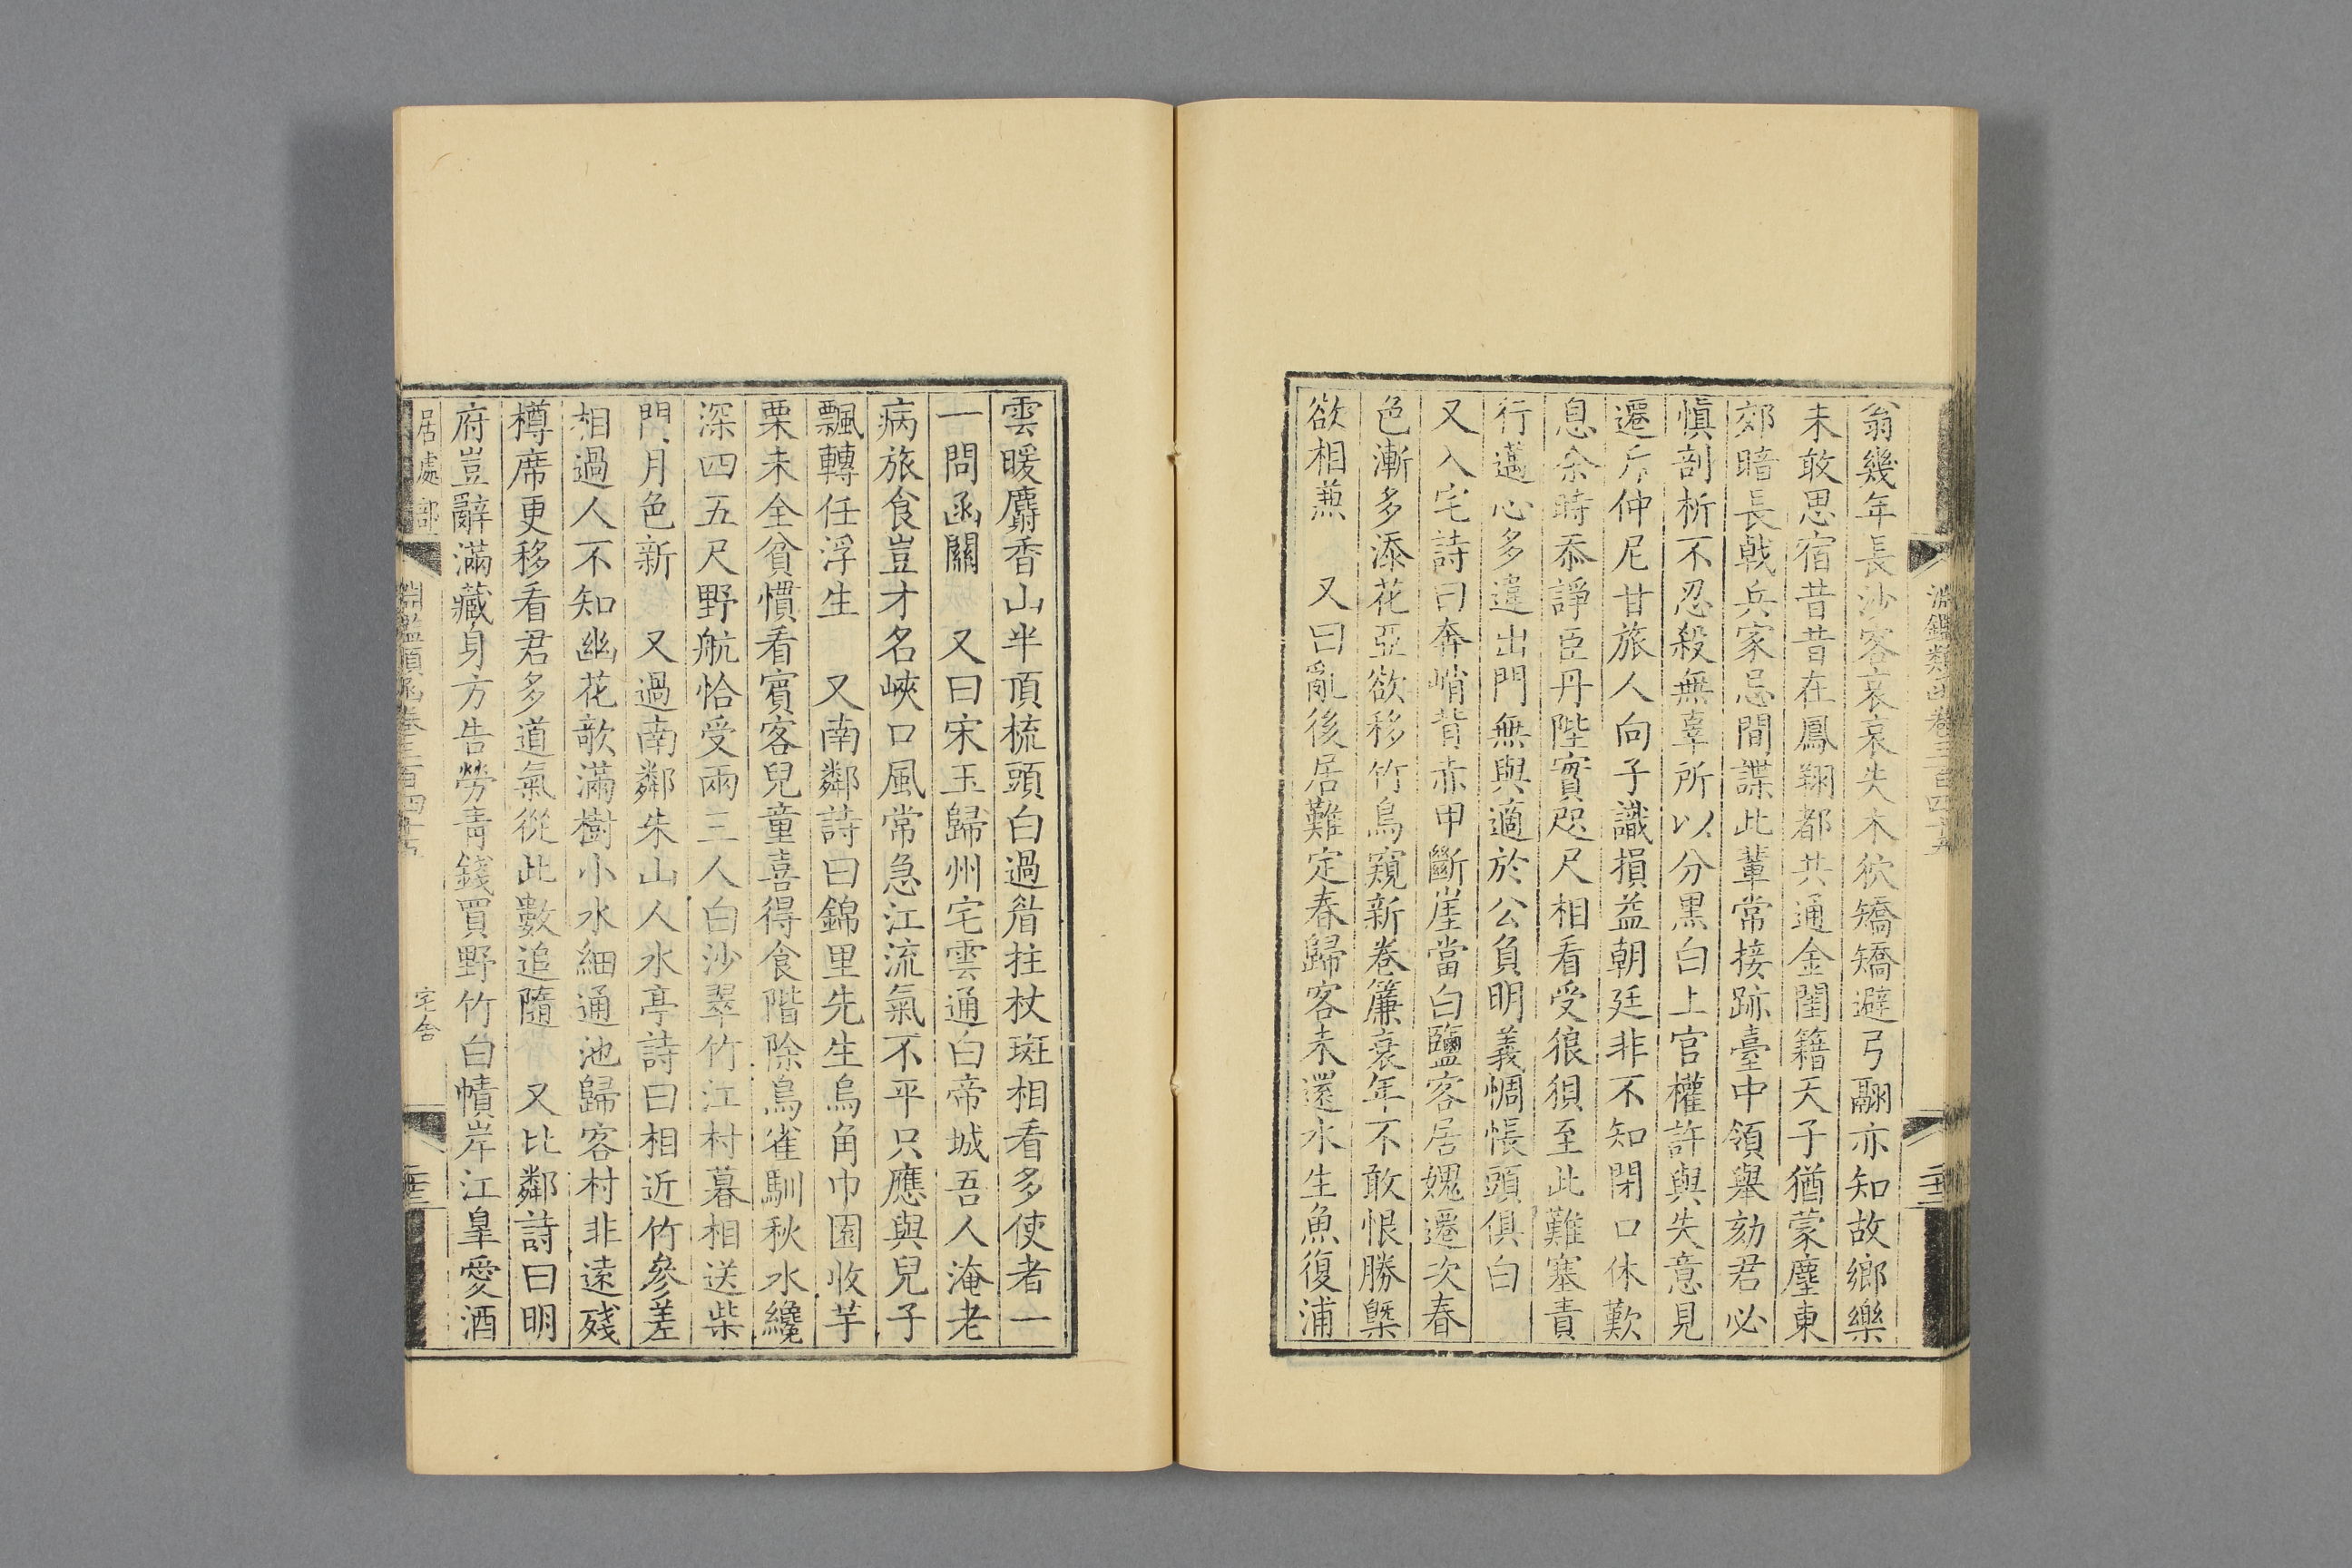 淵鑑類函卷三百四十五
二十二
翁幾年長沙客哀哀失木狖矯矯避弓翮亦知故鄉樂
未敢思宿昔昔在鳳翔都共通金閨籍天子猶蒙塵東
郊暗長戟兵家忌間諜此輩常接跡臺中領舉劾君必
慎剖析不忍殺無辜所以分黑白上官權許與失意見
遷斥仲尼甘旅人向子識損益朝廷非不知閉口休歎
息余時忝諍臣丹陛實咫尺相看受狼狽至此難塞責
行邁心多違出門無與適於公負明義惆悵頭俱白
又入宅詩曰奔峭背赤甲斷崖當白鹽客居媿遷次春
色漸多添花亞欲移竹鳥窺新卷簾衰年不敢恨勝槩
欲相蒹 又曰亂後居難定春歸客未還水生魚復浦
雲暖麝香山半頂梳頭白過眉拄杖斑相看多使者一
一問函關 又曰宋玉歸州宅雲通白帝城吾人淹老
病旅食豈才名峽口風常急江流氣不平只應與兒子
飄轉任浮生 又南鄰詩曰錦里先生烏角巾園收芋
栗未全貧慣看賓客兒童喜得食階除鳥雀馴秋水纔
深四五尺野航恰受兩三人白沙翠竹江村暮相送柴
門月色新 又過南鄰朱山人水亭詩曰相近竹參差
相過人不知幽花欹滿樹小水細通池歸客村非遠殘
樽席更移看君多道氣從此數追隨 又比鄰詩曰明
府豈辭滿藏身方告勞青錢買野竹白幘岸江皋愛酒
居處部
淵鑑類函卷三百四十五
宅舍
二十三